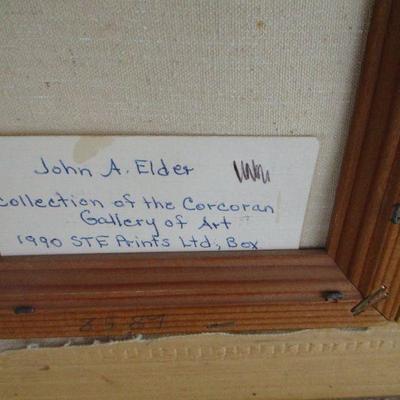 John A. Elder
collection of the Corcoran
Gallery of Art
1990 STE Prints Ltd., Box